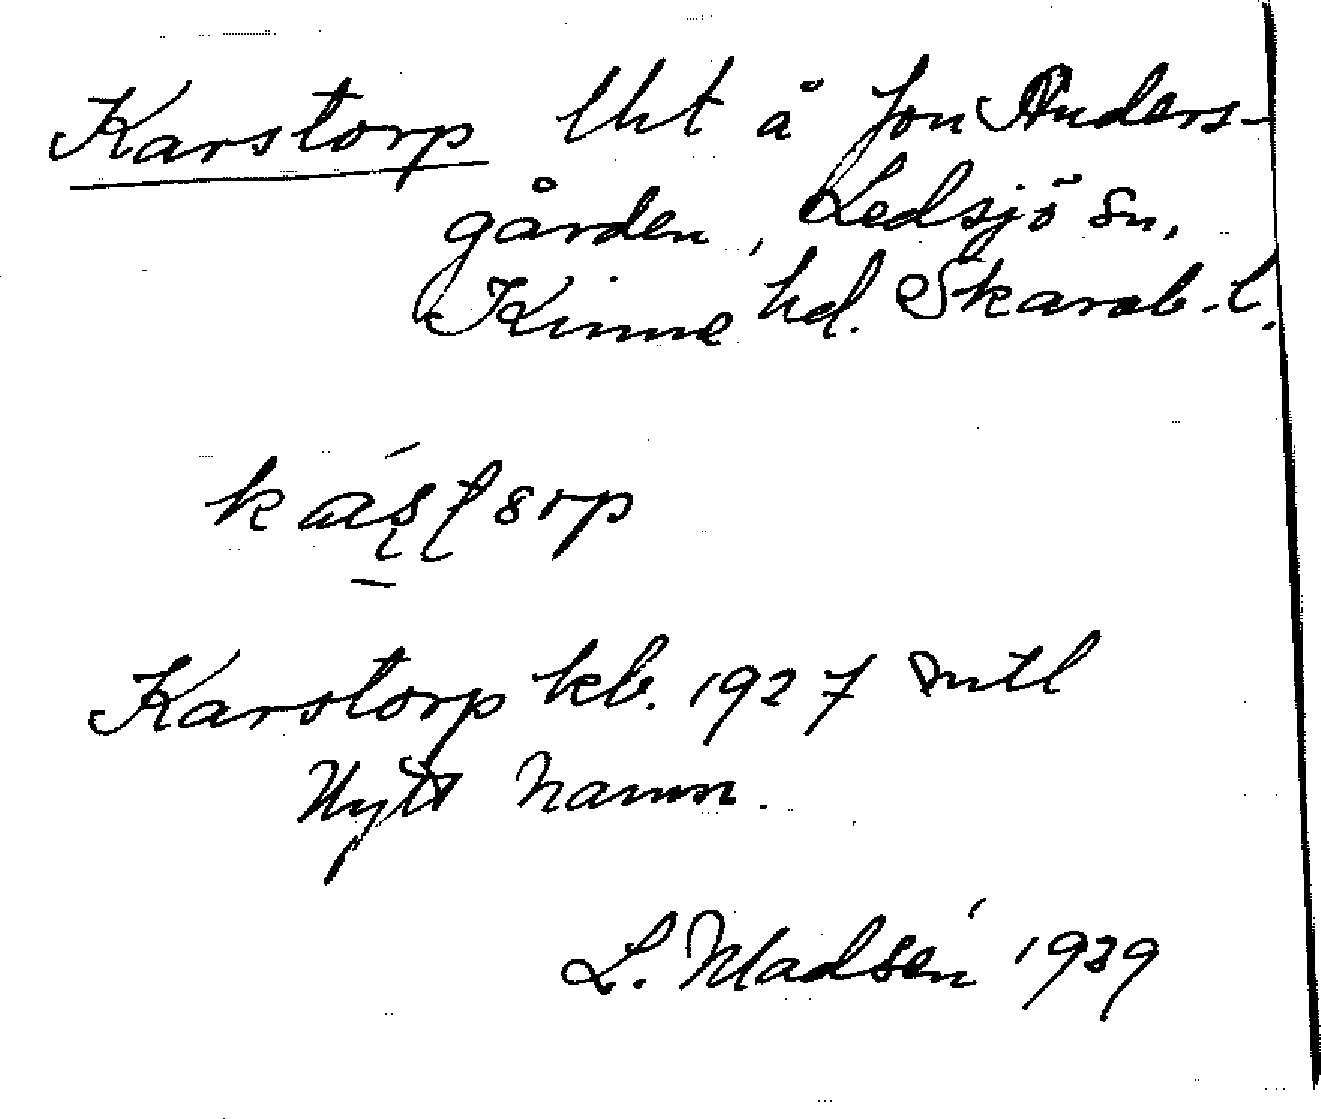 Karstorp lht å Jon Anders-
gården, Ledsjö sn,
Kinne hd. Skarab. l.
Karstorp kb. 1927 mtl
Nytt namn.
L. Madsén 1939